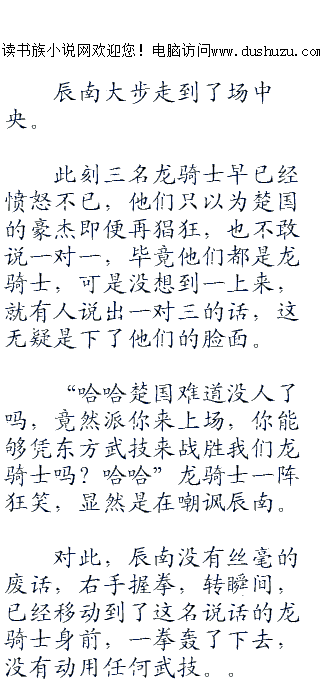 读书族小说网欢迎您！电脑访问www.dushuzu.com
辰南大步走到了场中
央。
此刻三名龙骑士早已经
愤怒不已，他们只以为楚国
的豪杰即便再猖狂，也不敢
说一对一，毕竟他们都是龙
骑士，可是没想到一上来，
就有人说出一对三的话，这
无疑是下了他们的脸面。
“哈哈楚国难道没人了
吗，竟然派你来上场，你能
够凭东方武技来战胜我们龙
骑士吗？哈哈”龙骑士一阵
狂笑，显然是在嘲讽辰南。
对此，辰南没有丝毫的
废话，右手握拳，转瞬间，
已经移动到了这名说话的龙
骑士身前，一拳轰了下去，
没有动用任何武技。。